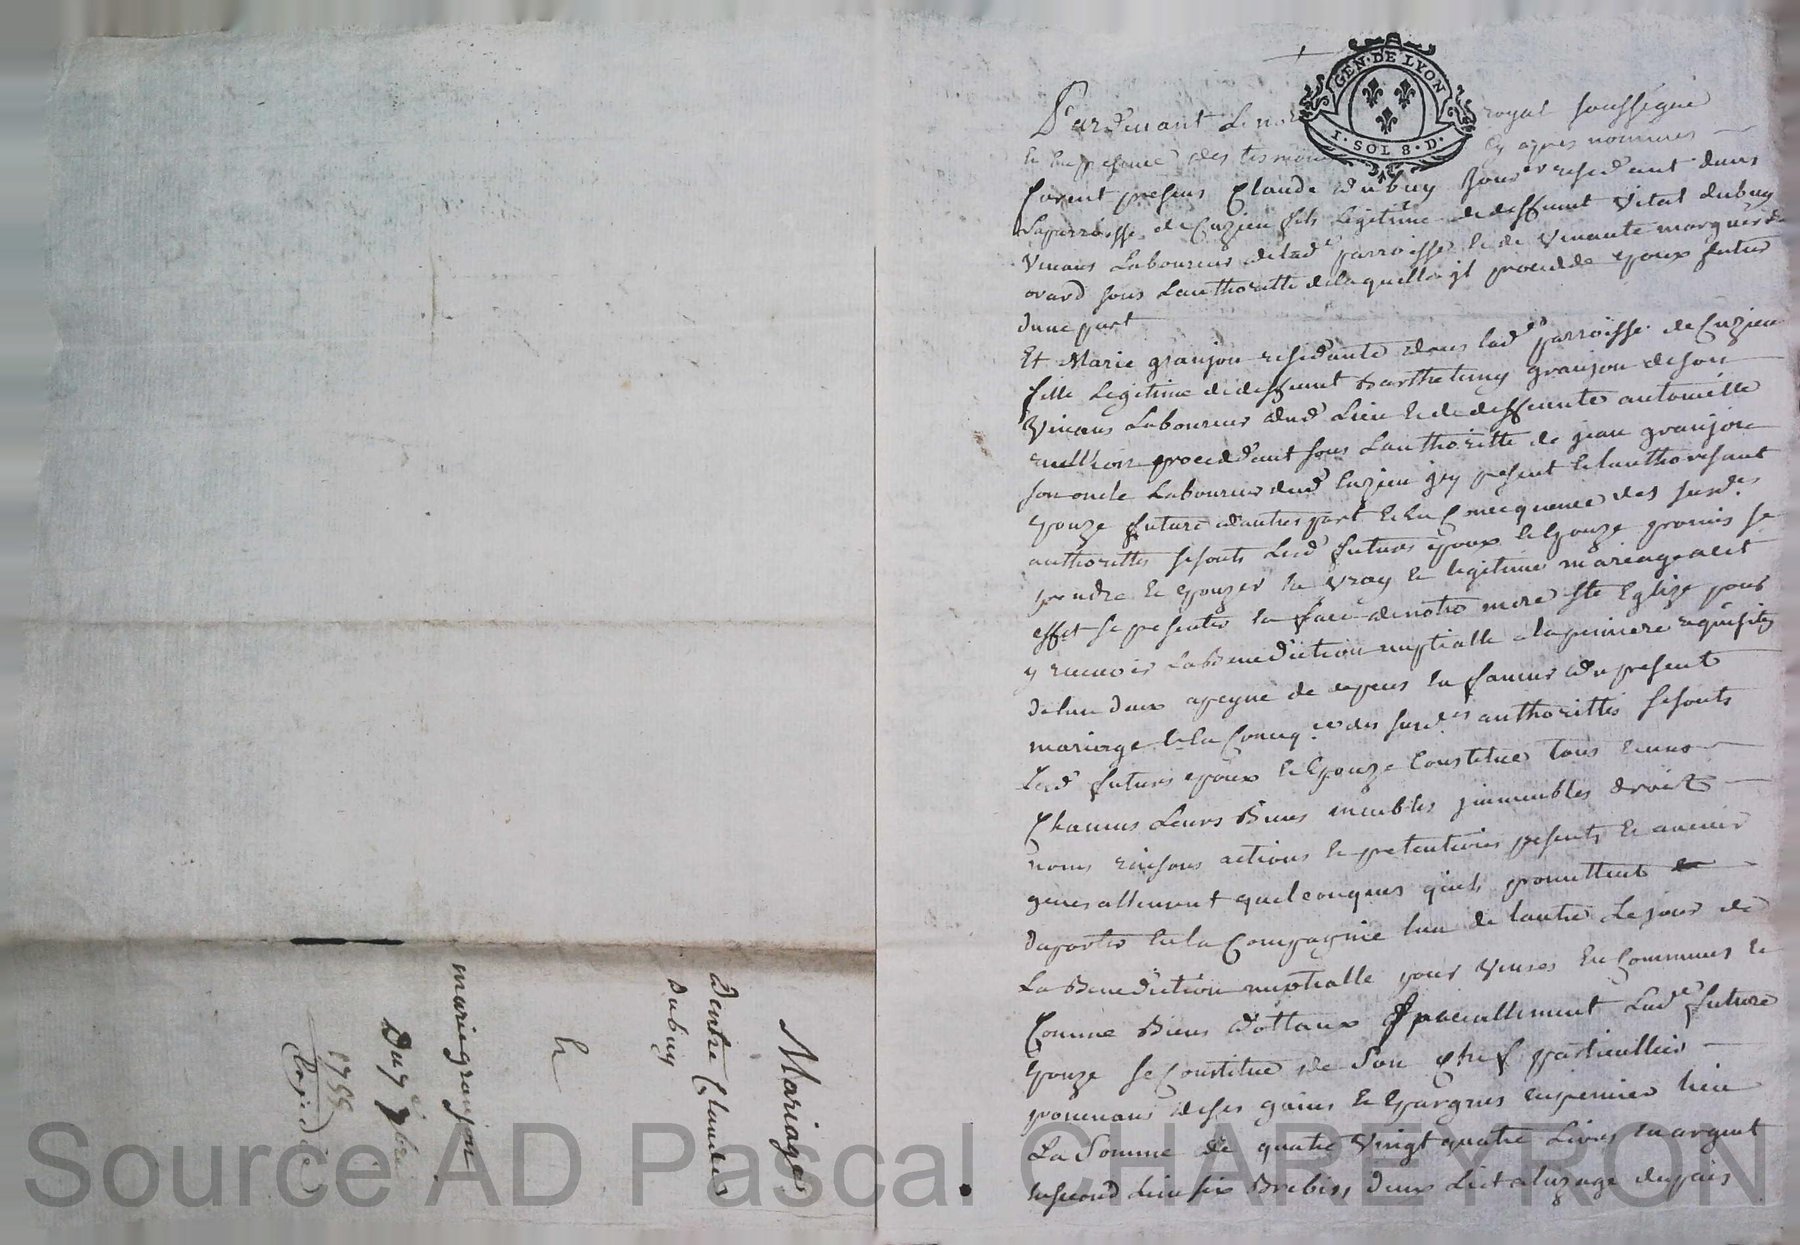 GEN·DE LYON
1·SOL 8·D·
Pardevant le no royal soussigné
et en presence des tesmoins cy apres nommes
furent presens Claude dubuy Jour resident dans
La parroisse de Cuzieu fils legitime de deffunt Vital dubuy
Vivant Laboureur de lad parroisse et de Vivante
ovard sous Lauthoritté delaquelle jl procedde epoux futur
dune part
Et Marie granjon residante dans lad parroisse de Cuzieu
fille legitime de deffunt Barthelemy granjon de son
Vivant Laboureur dud Lieu et de deffunte antoinette
procedant sous Lauthoritté de jean granjon
son oncle Laboureur dud Cuzieu jcy present et lauthorisant
Epouze future dautre part et en Consequence des susd
authorittés se sonts Lesd futurs epoux et Epouze promis se
prendre et epouzer en vray et legitime mariage a cet
effet se presenter en face de notre mere Ste Eglize pour
y recevoir La Benediction nuptialle a la premiere requisition
de lun deux a peyne de depens en faveur du present
mariage et en Conseq des susd authorittés se sonts
Lesd futurs epoux et Epouze Constitué tous et uns
Chacuns Leurs Biens meubles jmmeubles droits
noms raisons actions et pretentions presents et avenir
generallement quelconques quils promettent
daporter en la Compagnie lun de lautre Le jour de
La Benediction nuptialle pour Unis en Communs et
Comme Biens dottaux Speciallement Lad future
Epouze se Constitue de Son Chef particullier
provenans de ses gains et Epargnes en premier lieu
La Somme de quatre Vingt quatre Livres en argent
en second Lieu six Brebis, deux Licts a luzage du pais
Mariage
Dentre Claude
Dubuy
Et
marie granjon
Du 7 7bre
1755
Expedié
Source AD Pascal CHAREYRON